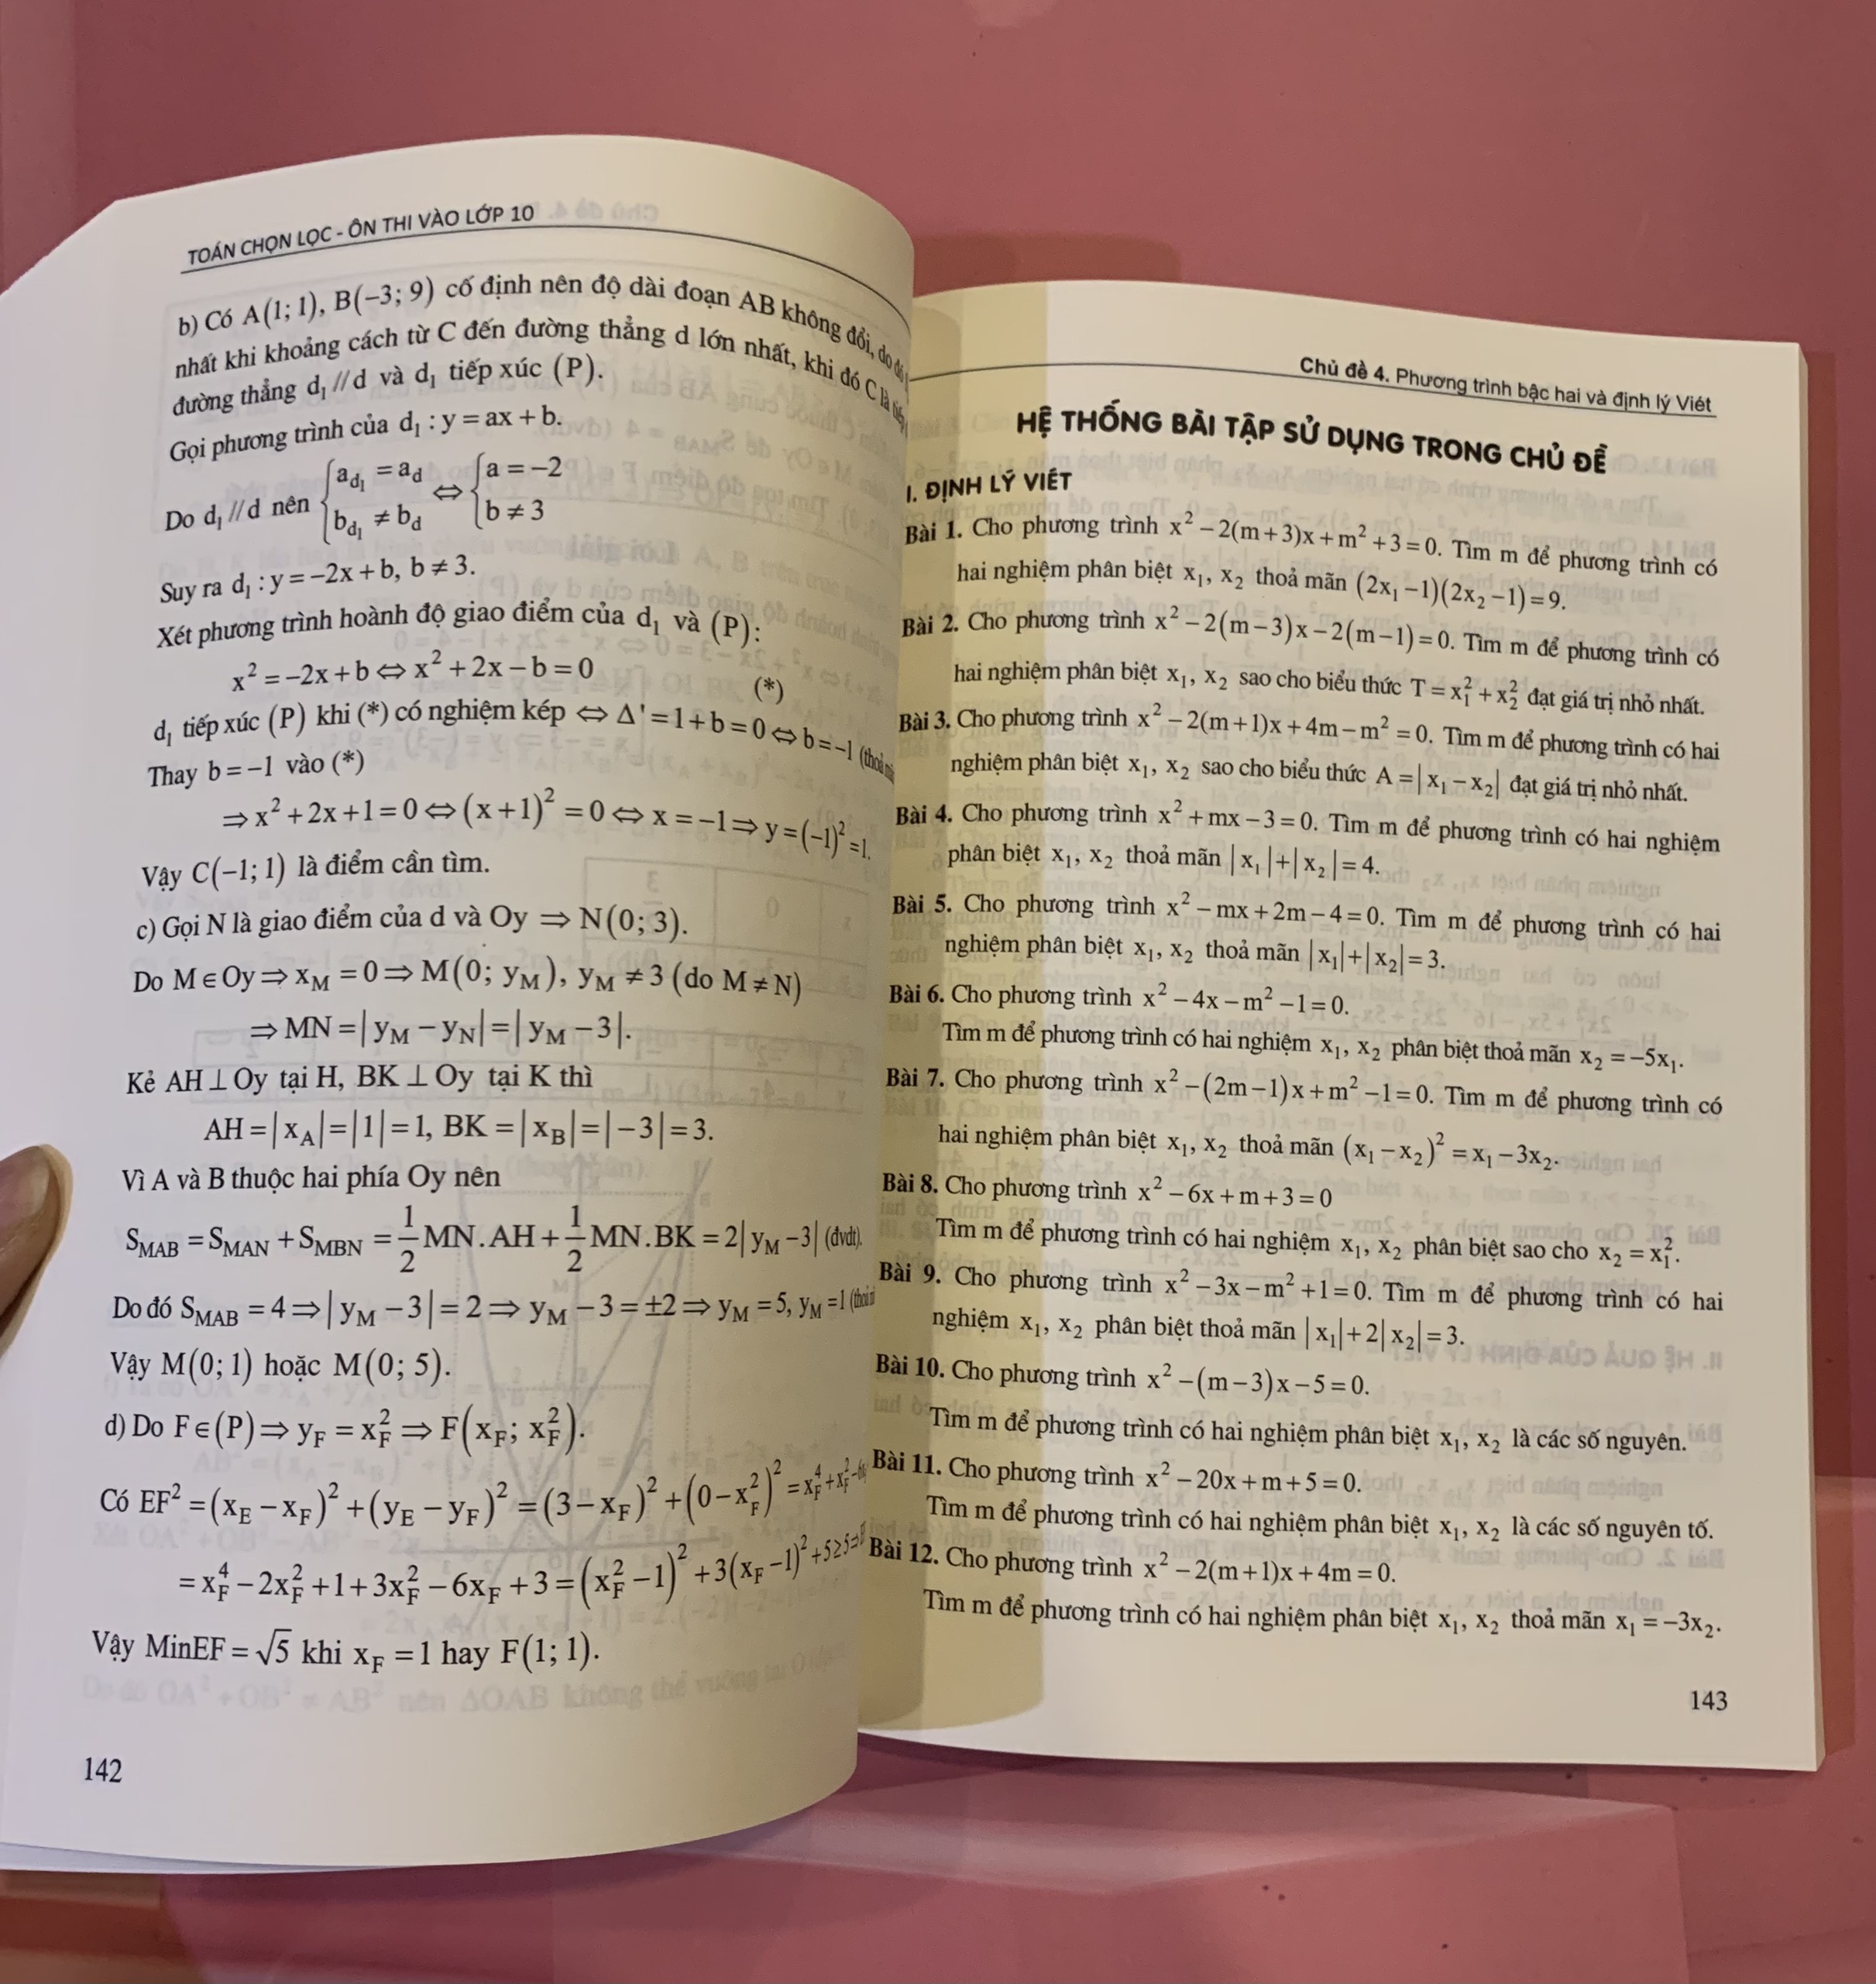 TOÁN CHỌN LỌC - ÔN THI VÀO LỚP 10
b) Có A(1; 1), B(−3; 9) cố định nên độ dài đoạn AB không đổi, do đó
nhất khi khoảng cách từ C đến đường thẳng d lớn nhất, khi đó C là tiếp
đường thẳng d₁ // d và d₁ tiếp xúc (P).
Gọi phương trình của d₁ : y = ax + b.
Do d₁ // d nên { a_d₁ = a_d ; b_d₁ ≠ b_d ⇔ { a = −2 ; b ≠ 3
Suy ra d₁ : y = −2x + b, b ≠ 3.
Xét phương trình hoành độ giao điểm của d₁ và (P):
x² = −2x + b ⇔ x² + 2x − b = 0 (*)
d₁ tiếp xúc (P) khi (*) có nghiệm kép ⇔ Δ' = 1 + b = 0 ⇔ b = −1 (thoả
Thay b = −1 vào (*)
⇒ x² + 2x + 1 = 0 ⇔ (x + 1)² = 0 ⇔ x = −1 ⇒ y = (−1)² = 1.
Vậy C(−1; 1) là điểm cần tìm.
c) Gọi N là giao điểm của d và Oy ⇒ N(0; 3).
Do M ∈ Oy ⇒ x_M = 0 ⇒ M(0; y_M), y_M ≠ 3 (do M ≠ N)
⇒ MN = |y_M − y_N| = |y_M − 3|.
Kẻ AH ⊥ Oy tại H, BK ⊥ Oy tại K thì
AH = |x_A| = |1| = 1, BK = |x_B| = |−3| = 3.
Vì A và B thuộc hai phía Oy nên
S_MAB = S_MAN + S_MBN = 1/2 MN.AH + 1/2 MN.BK = 2|y_M − 3| (đvdt).
Do đó S_MAB = 4 ⇒ |y_M − 3| = 2 ⇒ y_M − 3 = ±2 ⇒ y_M = 5, y_M = 1
Vậy M(0; 1) hoặc M(0; 5).
d) Do F ∈ (P) ⇒ y_F = x_F² ⇒ F(x_F; x_F²).
Có EF² = (x_E − x_F)² + (y_E − y_F)² = (3 − x_F)² + (0 − x_F²)² = x_F⁴ + x_F²
= x_F⁴ − 2x_F² + 1 + 3x_F² − 6x_F + 3 = (x_F² − 1)² + 3(x_F − 1)² + 5 ≥ 5 ⇒
Vậy MinEF = √5 khi x_F = 1 hay F(1; 1).
142
Chủ đề 4. Phương trình bậc hai và định lý Viét
HỆ THỐNG BÀI TẬP SỬ DỤNG TRONG CHỦ ĐỀ
I. ĐỊNH LÝ VIÉT
Bài 1. Cho phương trình x² − 2(m + 3)x + m² + 3 = 0. Tìm m để phương trình có
hai nghiệm phân biệt x₁, x₂ thoả mãn (2x₁ − 1)(2x₂ − 1) = 9.
Bài 2. Cho phương trình x² − 2(m − 3)x − 2(m − 1) = 0. Tìm m để phương trình có
hai nghiệm phân biệt x₁, x₂ sao cho biểu thức T = x₁² + x₂² đạt giá trị nhỏ nhất.
Bài 3. Cho phương trình x² − 2(m + 1)x + 4m − m² = 0. Tìm m để phương trình có hai
nghiệm phân biệt x₁, x₂ sao cho biểu thức A = |x₁ − x₂| đạt giá trị nhỏ nhất.
Bài 4. Cho phương trình x² + mx − 3 = 0. Tìm m để phương trình có hai nghiệm
phân biệt x₁, x₂ thoả mãn |x₁| + |x₂| = 4.
Bài 5. Cho phương trình x² − mx + 2m − 4 = 0. Tìm m để phương trình có hai
nghiệm phân biệt x₁, x₂ thoả mãn |x₁| + |x₂| = 3.
Bài 6. Cho phương trình x² − 4x − m² − 1 = 0.
Tìm m để phương trình có hai nghiệm x₁, x₂ phân biệt thoả mãn x₂ = −5x₁.
Bài 7. Cho phương trình x² − (2m − 1)x + m² − 1 = 0. Tìm m để phương trình có
hai nghiệm phân biệt x₁, x₂ thoả mãn (x₁ − x₂)² = x₁ − 3x₂.
Bài 8. Cho phương trình x² − 6x + m + 3 = 0
Tìm m để phương trình có hai nghiệm x₁, x₂ phân biệt sao cho x₂ = x₁².
Bài 9. Cho phương trình x² − 3x − m² + 1 = 0. Tìm m để phương trình có hai
nghiệm x₁, x₂ phân biệt thoả mãn |x₁| + 2|x₂| = 3.
Bài 10. Cho phương trình x² − (m − 3)x − 5 = 0.
Tìm m để phương trình có hai nghiệm phân biệt x₁, x₂ là các số nguyên.
Bài 11. Cho phương trình x² − 20x + m + 5 = 0.
Tìm m để phương trình có hai nghiệm phân biệt x₁, x₂ là các số nguyên tố.
Bài 12. Cho phương trình x² − 2(m + 1)x + 4m = 0.
Tìm m để phương trình có hai nghiệm phân biệt x₁, x₂ thoả mãn x₁ = −3x₂.
143